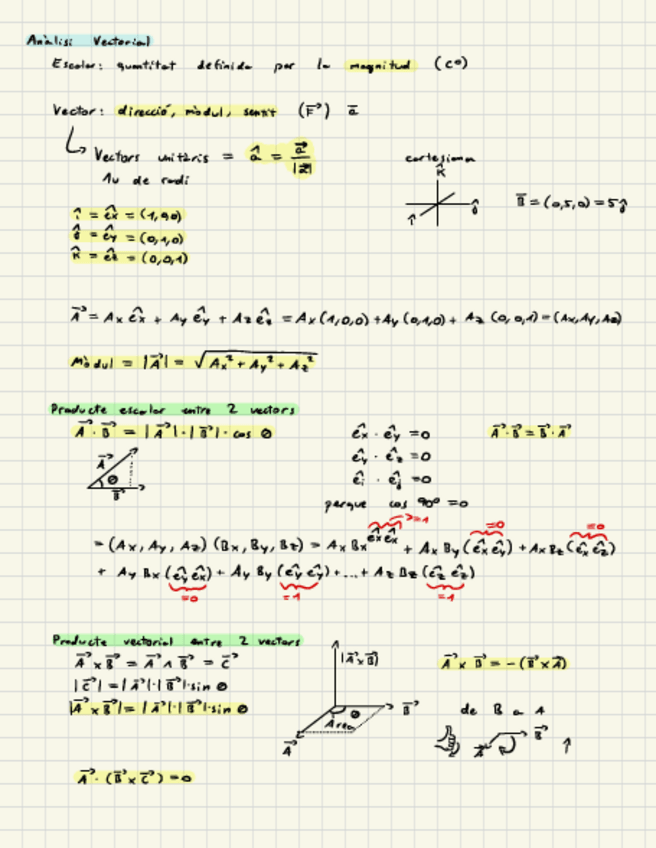 Anàlisi Vectorial
Escolar: quantitat definida per la magnitud (Cº)
Vector: direcció, mòdul, sentit (F⃗) a̅
Vectors unitàris = â = a⃗/|a⃗|
1u de radi
cartesiana
k̂
ĵ
î
B̅ = (0,5,0) = 5ĵ
î = êx = (1,0,0)
ĵ = êy = (0,1,0)
k̂ = êz = (0,0,1)
A⃗ = Ax êx + Ay êy + Az êz = Ax (1,0,0) + Ay (0,1,0) + Az (0,0,1) = (Ax, Ay, Az)
Mòdul = |A⃗| = √(Ax² + Ay² + Az²)
Producte escolar entre 2 vectors
A⃗ · B⃗ = |A⃗| · |B⃗| · cos θ
êx · êy = 0
A⃗ · B⃗ = B⃗ · A⃗
êy · êz = 0
êi · êj = 0
A⃗
θ
B⃗
perque cos 90º = 0
= (Ax, Ay, Az) (Bx, By, Bz) = Ax Bx êx êx + Ax By (êx êy) + Ax Bz (êx êz)
=1 =0 =0
+ Ay Bx (êy êx) + Ay By (êy êy) + ... + Az Bz (êz êz)
=0 =1 =1
Producte vectorial entre 2 vectors
A⃗ x B⃗ = A⃗ ∧ B⃗ = C⃗
|C⃗| = |A⃗| · |B⃗| · sin θ
|A⃗ x B⃗| = |A⃗| · |B⃗| · sin θ
|A⃗ x B⃗|
θ
Area
B⃗
A⃗
A⃗ x B⃗ = -(B⃗ x A⃗)
de B a A
A⃗ B⃗
A⃗ · (B⃗ x C⃗) = 0